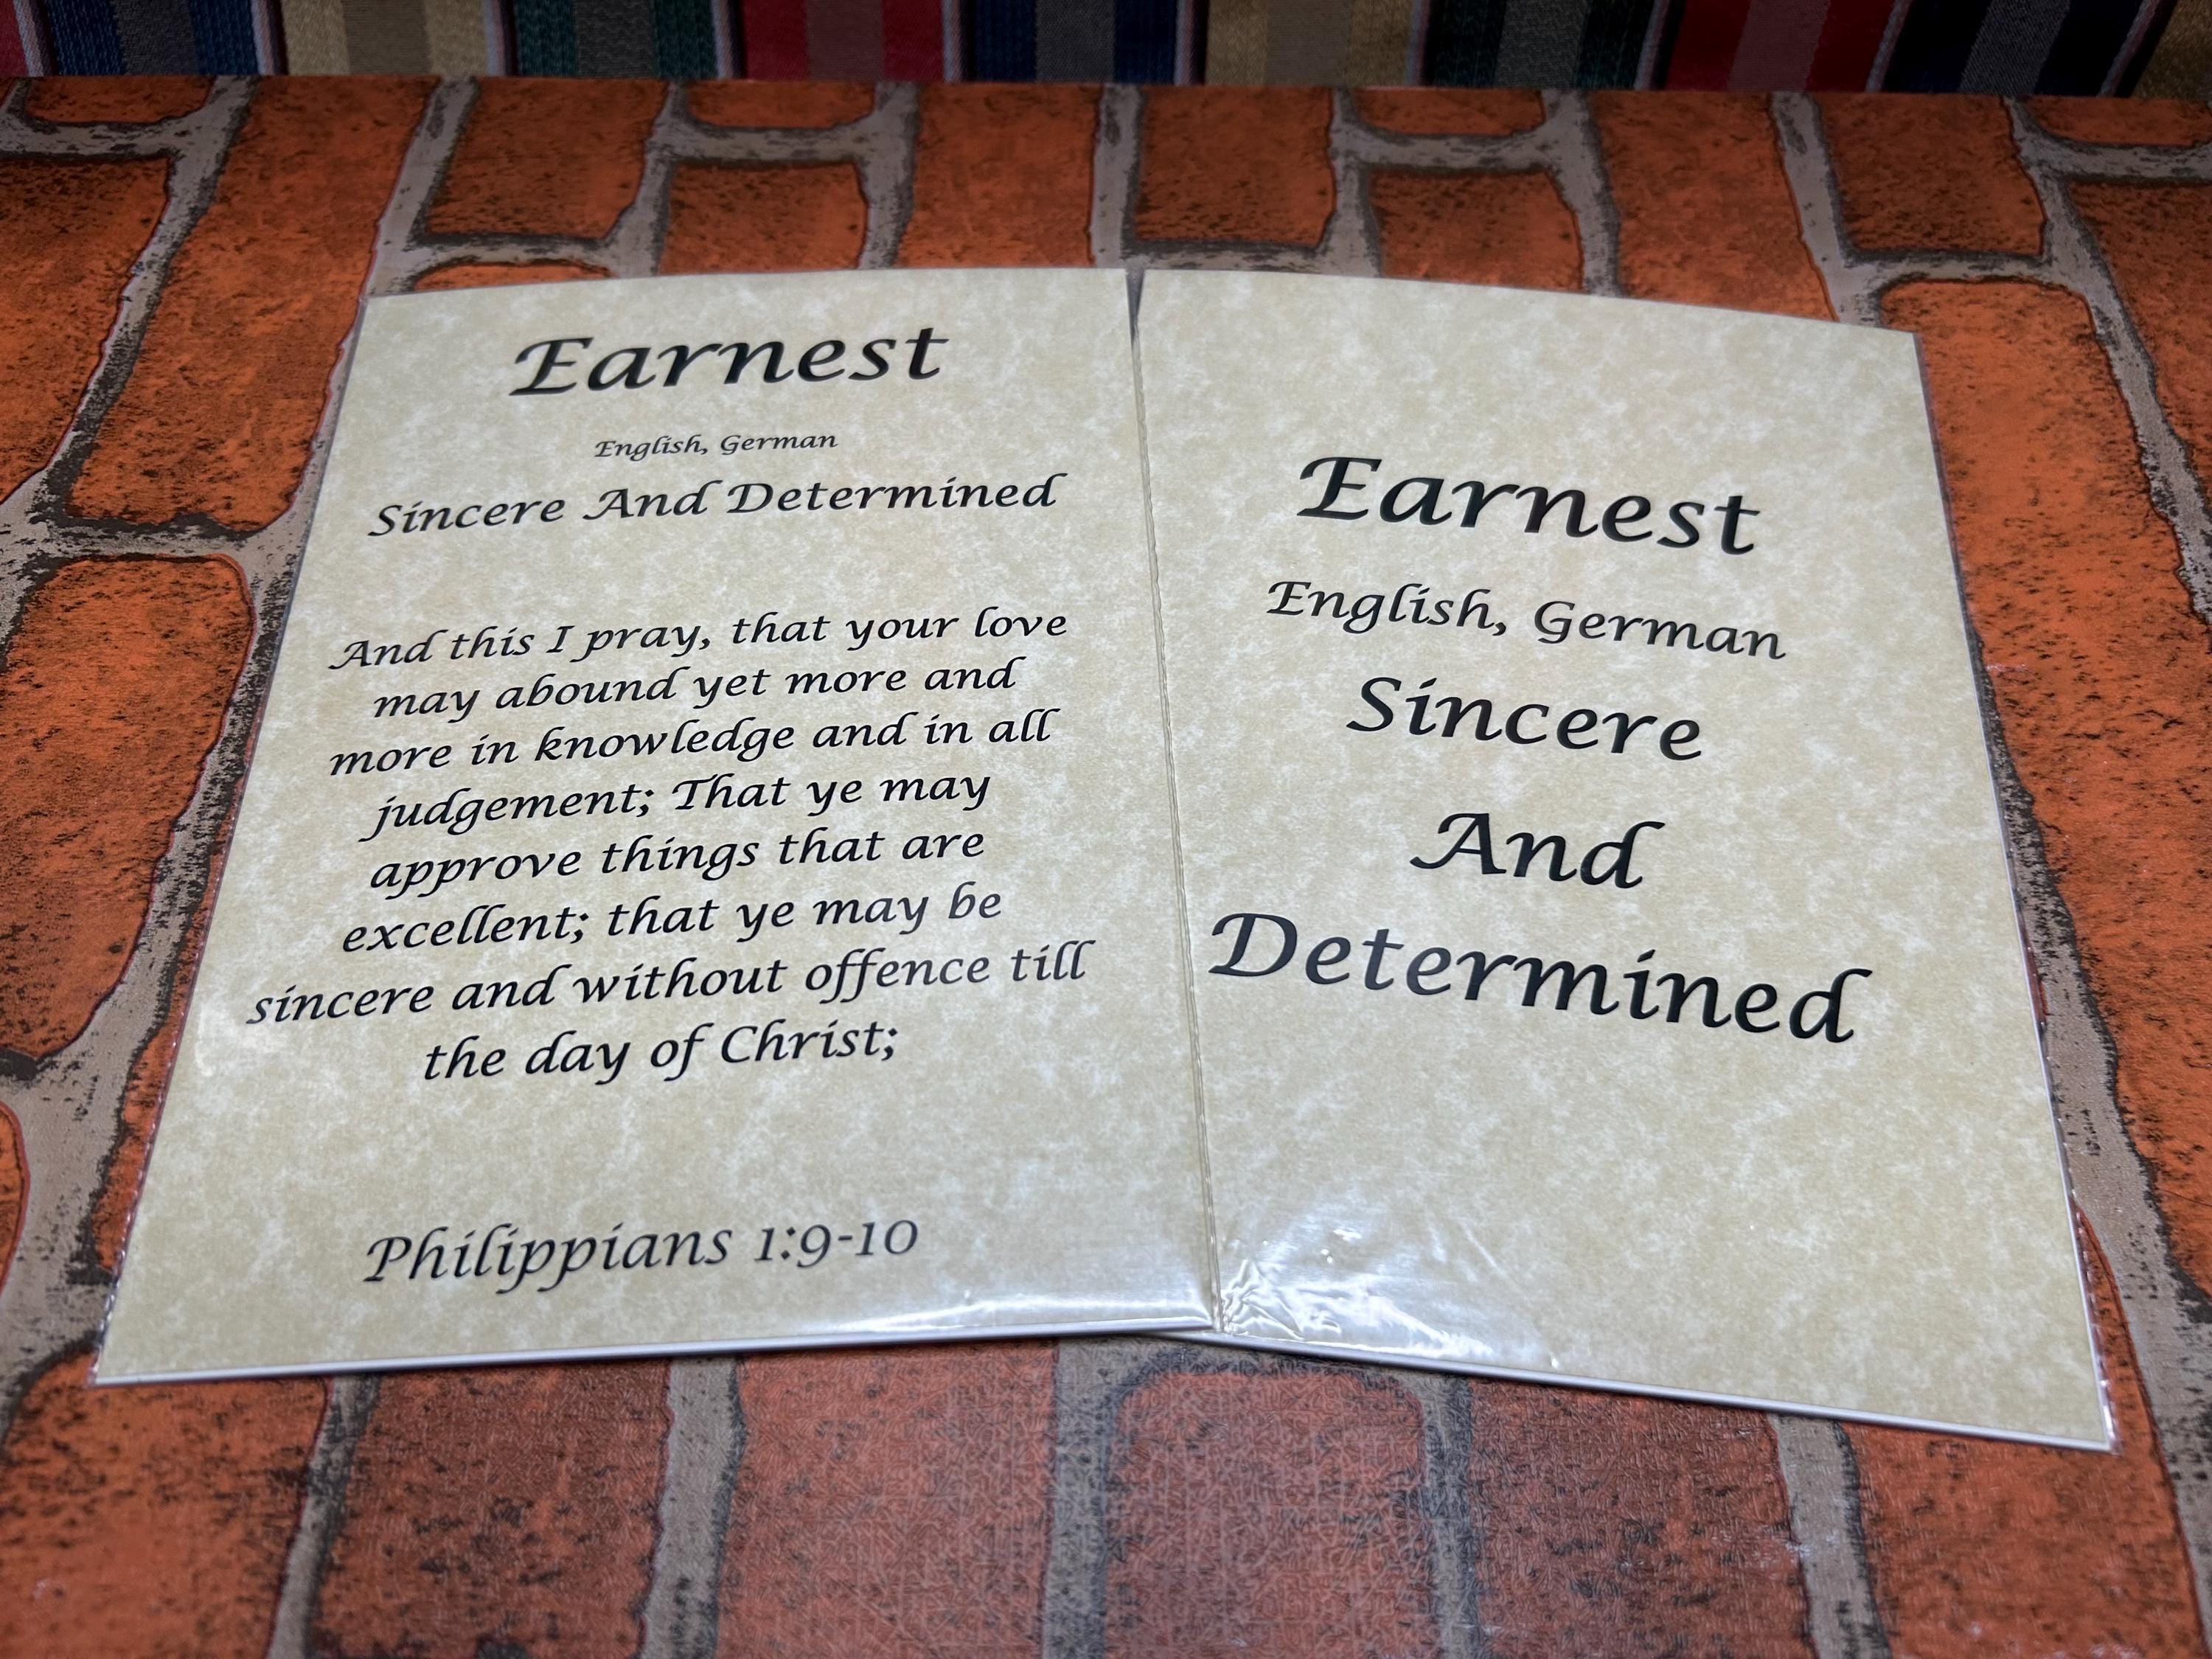 Earnest
English, German
Sincere And Determined
And this I pray, that your love
may abound yet more and
more in knowledge and in all
judgement; That ye may
approve things that are
excellent; that ye may be
sincere and without offence till
the day of Christ;
Philippians 1:9-10
Earnest
English, German
Sincere
And
Determined